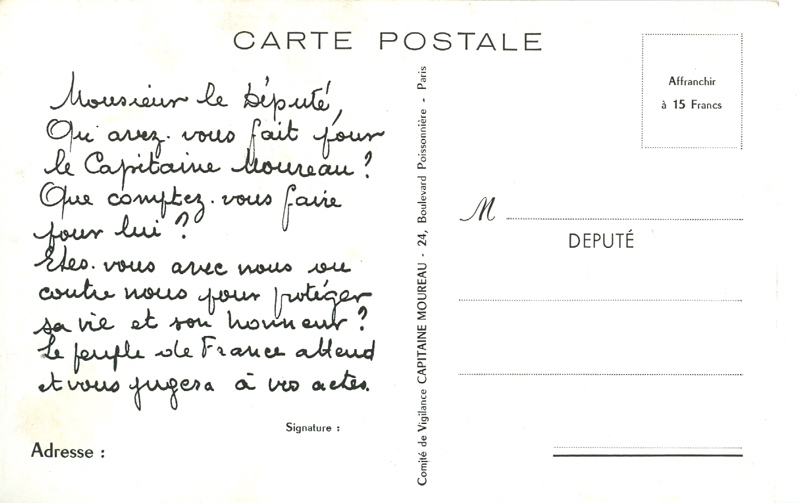 CARTE POSTALE
Monsieur le Député,
Qu'avez-vous fait pour
le Capitaine Moureau ?
Que comptez-vous faire
pour lui ?
Etes-vous avec nous ou
contre nous pour protéger
sa vie et son honneur ?
Le peuple de France attend
et vous jugera à vos actes.
Signature :
Adresse :
Comité de Vigilance CAPITAINE MOUREAU - 24, Boulevard Poissonnière - Paris
Affranchir
à 15 Francs
M
DEPUTÉ